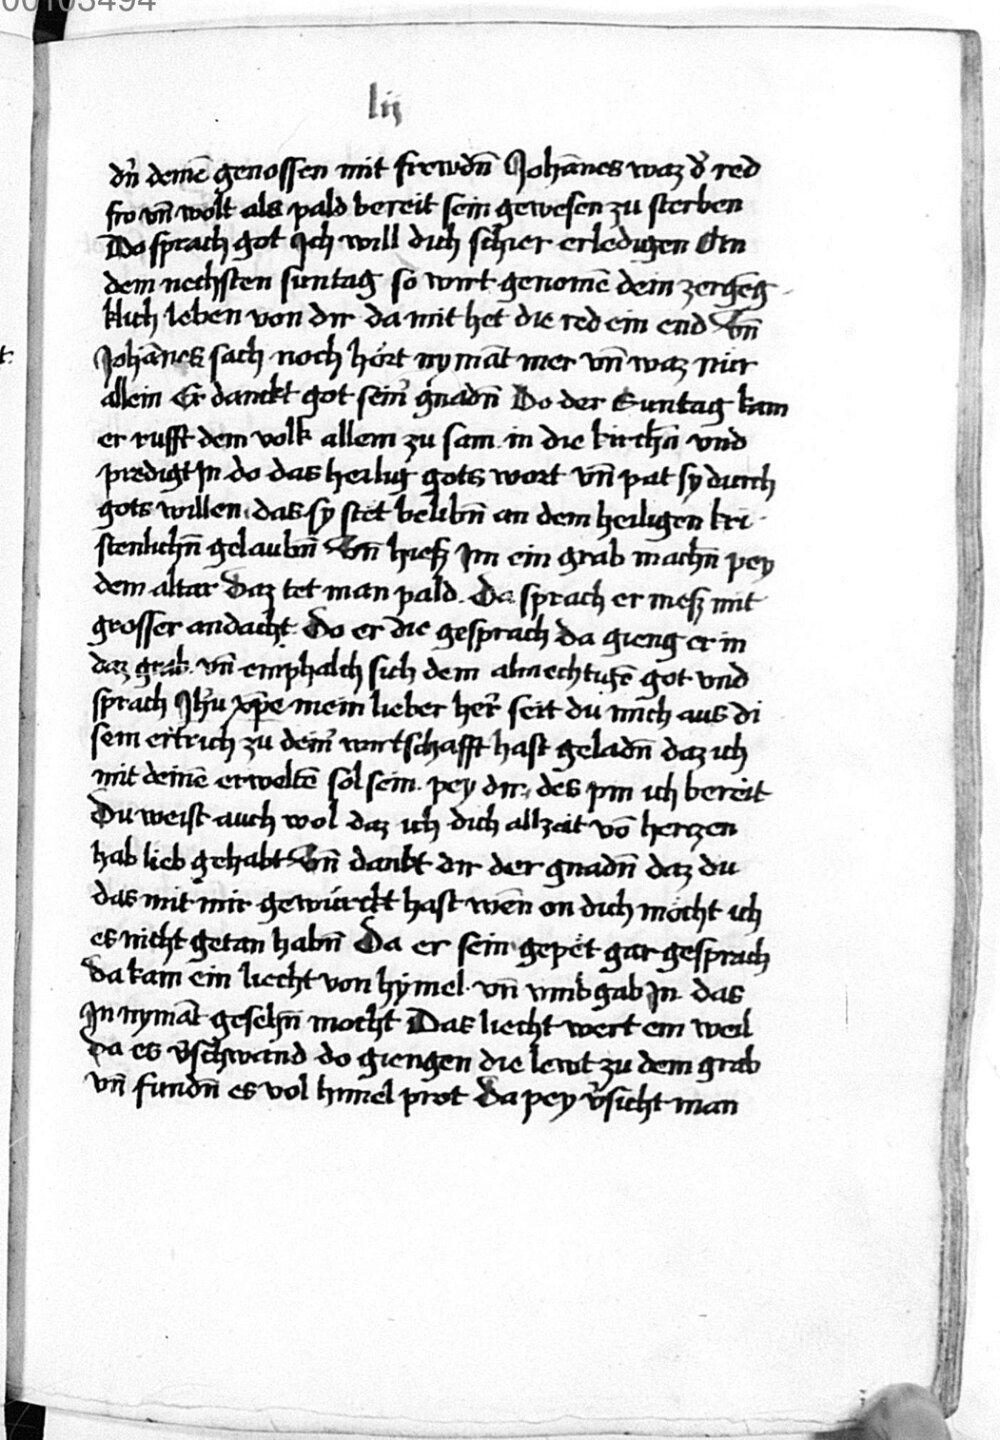 00103494
lij
dñ deinē genossen mit frewdñ Johānes waz d̓ red
fro vñ wolt als pald bereit sein gewesen zu sterben
Do sprach got Ich will dich schier erledigen An
dem nechsten suntag so wirt genomē dein zergēg
klich leben von dir da mit het die red ein end Vñ
Johānes sach noch hört nymāt mer vñ waz nůr
allein Er danckt got sein̓ gnadñ Do der Suntag kam
er rufft dem volk allem zu sam in die kirchñ vnd
predigt In do das heilig gots wort vñ pat sy durch
gots willen das sy stet belibñ an dem heiligen kri
stenlichñ gelaubñ Vñ hiesz Im ein grab machñ pey
dem altar Daz tet man pald. Da sprach er mesz mit
grosser andacht Do er die gesprach da gieng er in
daz grab vñ emphalch sich dem almechtigē got vnd
sprach Jh̓u xp̄e mein lieber her̓ seit du mich aus di
sem ertrich zu dein̓ wirtschafft hast geladñ daz ich
mit deinē erweltē sol sein pey dir, des pin ich bereit
Du weist auch wol daz ich dich allzait vō hertzen
hab lieb gehabt Vñ dankt dir der gnadñ daz du
das mit mir gewürckt hast wēn on dich möcht ich
es nicht getan habñ Da er sein gepet gar gesprach
da kam ein liecht von hymel vñ vmbgab In das
In nymāt gesehñ mocht Das liecht wert ein weil
Da es v̓schwand do giengen die lewt zu dem grab
vñ fundñ es vol himel prot Da pey v̓sicht man